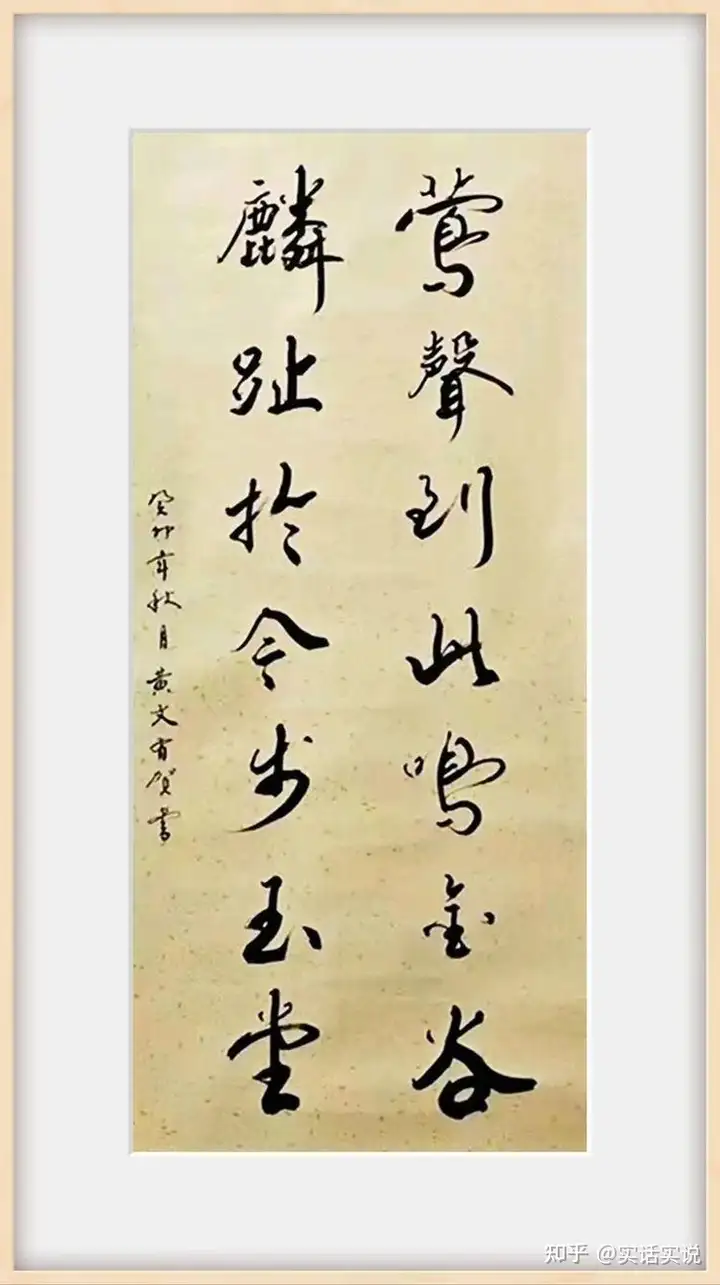 鶯聲到此鳴金谷
麟趾於今步玉堂
癸卯年秋月黄文有賀書
知乎 @实话实说